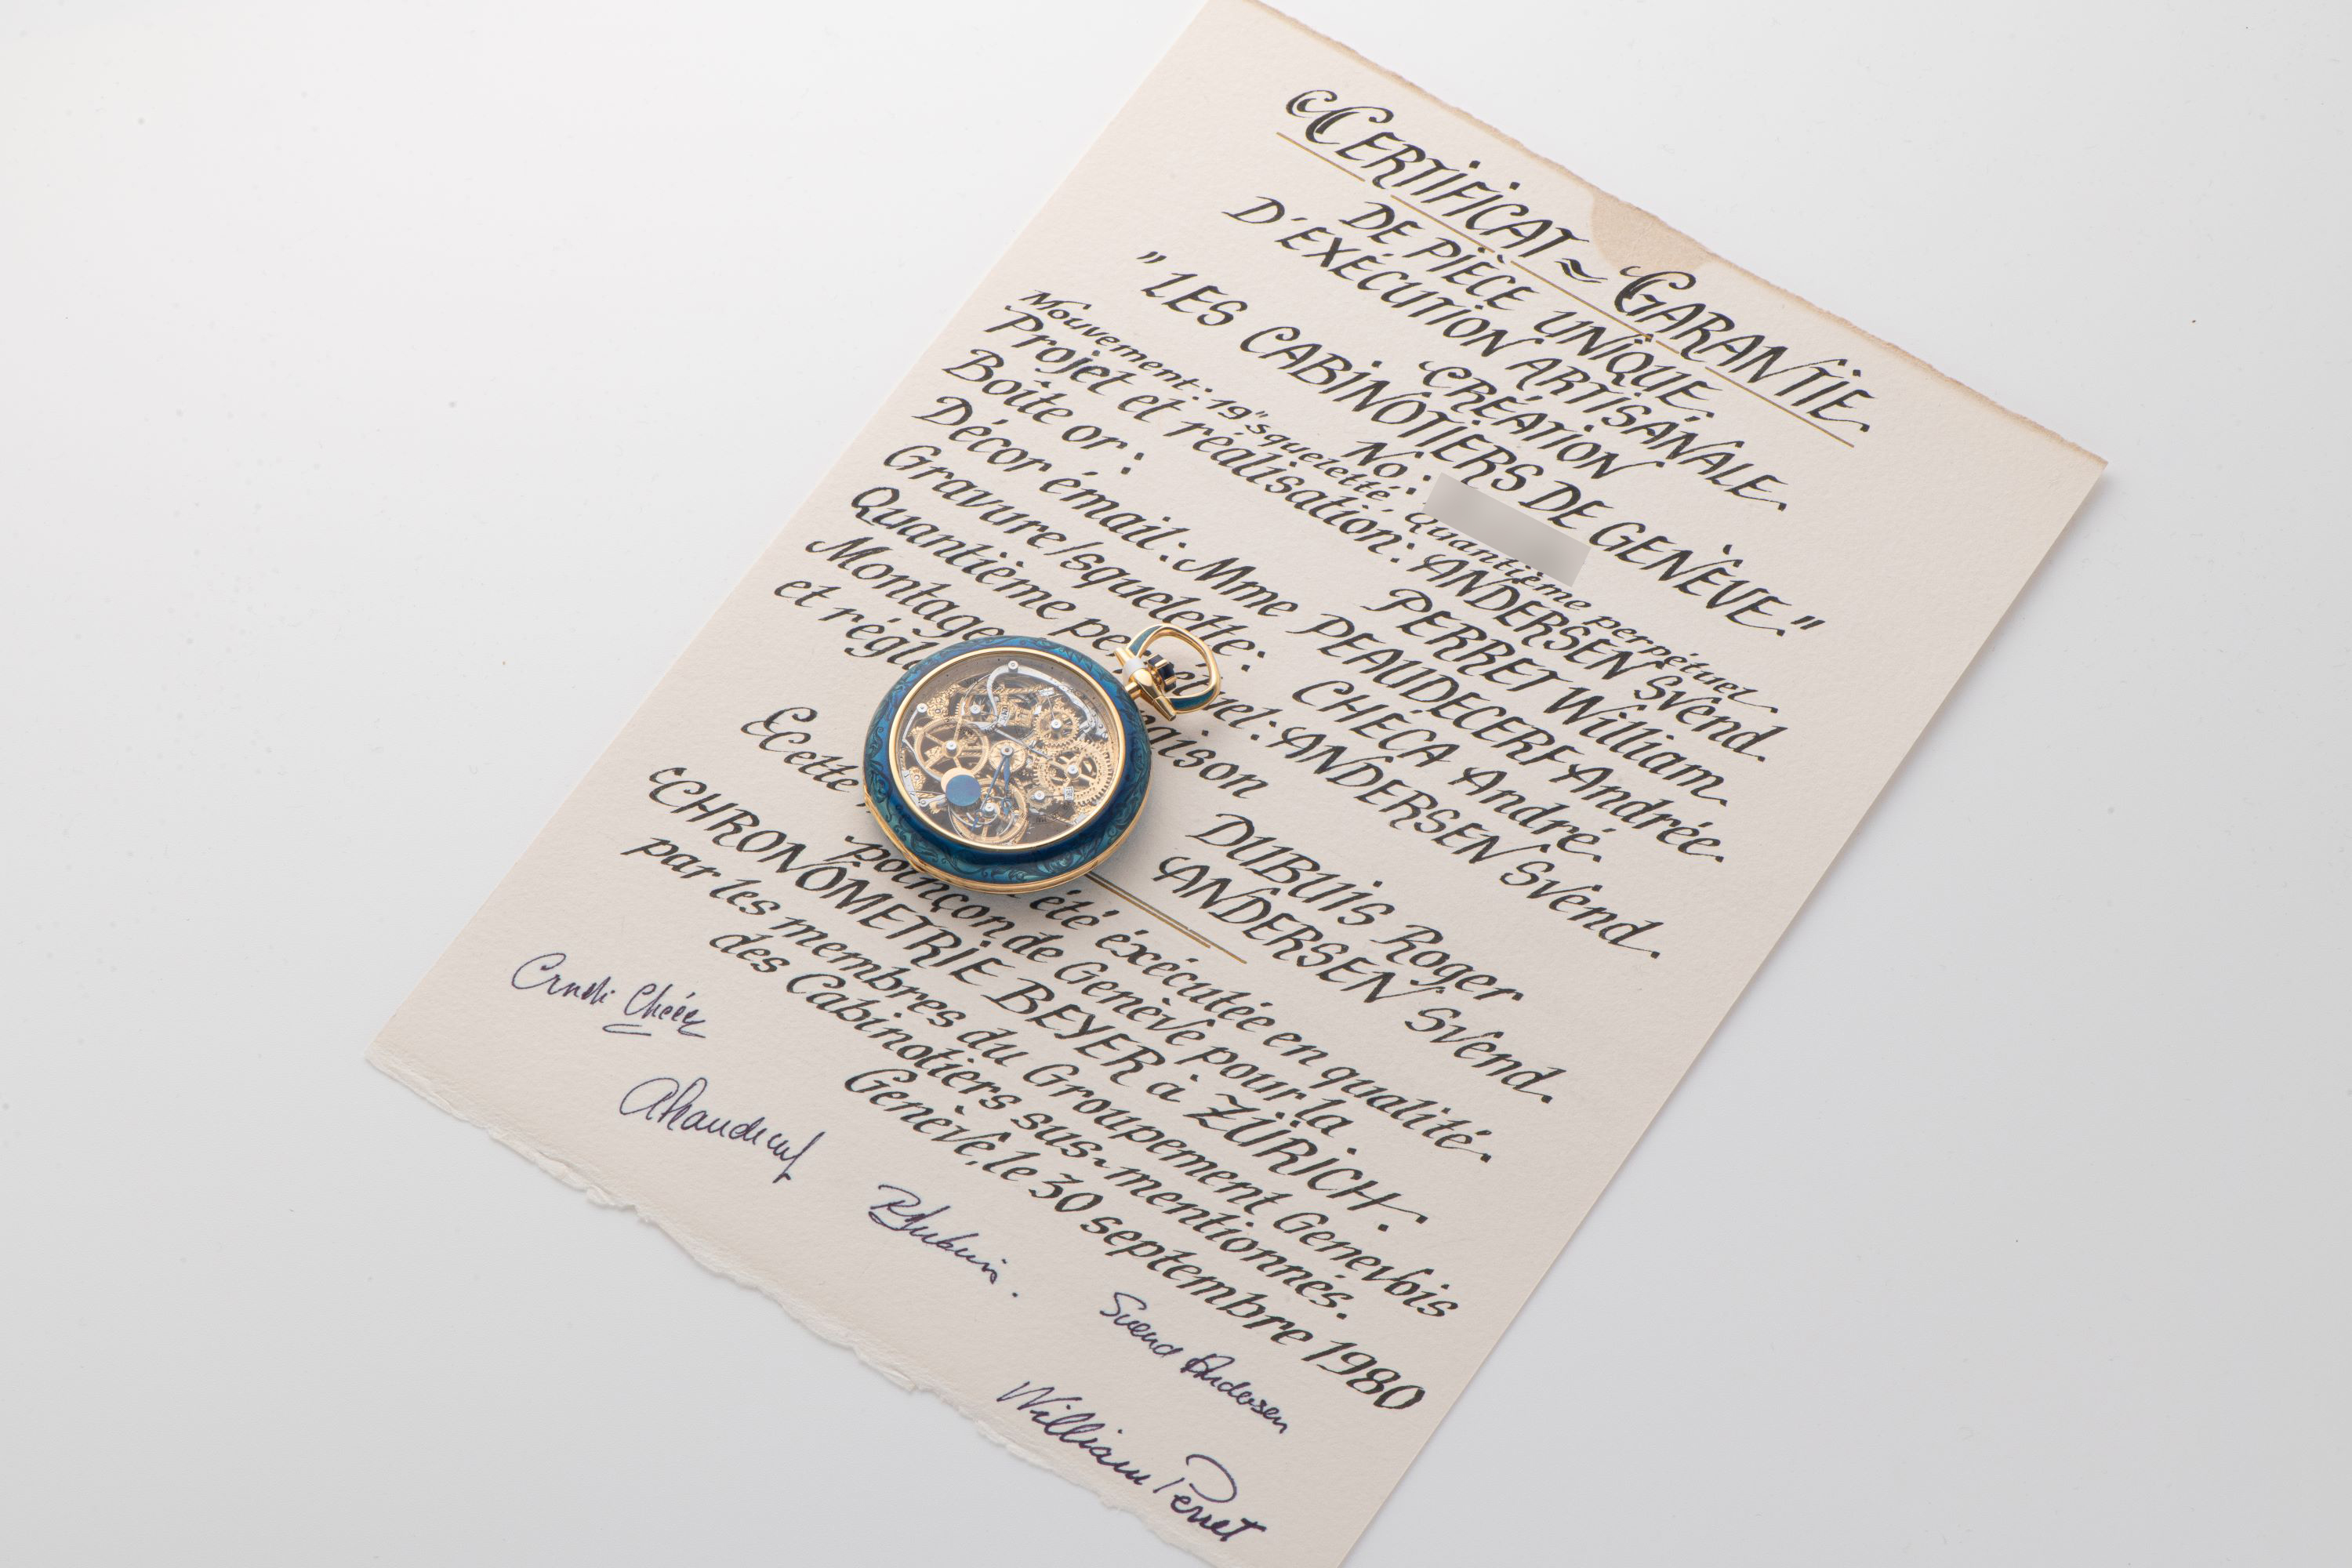 CERTIFICAT ~ GARANTIE
DE PIÈCE UNIQUE
D'EXÉCUTION ARTISANALE.
CRÉATION
"LES CABINOTIERS DE GENÈVE."
No:
Mouvement: 19" squeletté, quantième perpétuel
Projet et réalisation: ANDERSEN Svend.
Boîte or: PERRET William.
Décor émail: Mme PEAUDECERF Andrée.
Gravure/squelette: CHECA André.
Quantième perp uel: ANDERSEN Svend.
Montage
et régl aison DUBUIS Roger
ANDERSEN Svend.
Cette été éxécutée en qualité.
poinçon de Genève pour la
CHRONOMETRIE BEYER à ZÜRICH.
par les membres du Groupement Genevois
des Cabinotiers sus-mentionnés.
Genève, le 30 septembre 1980
Svend Andersen
William Perret